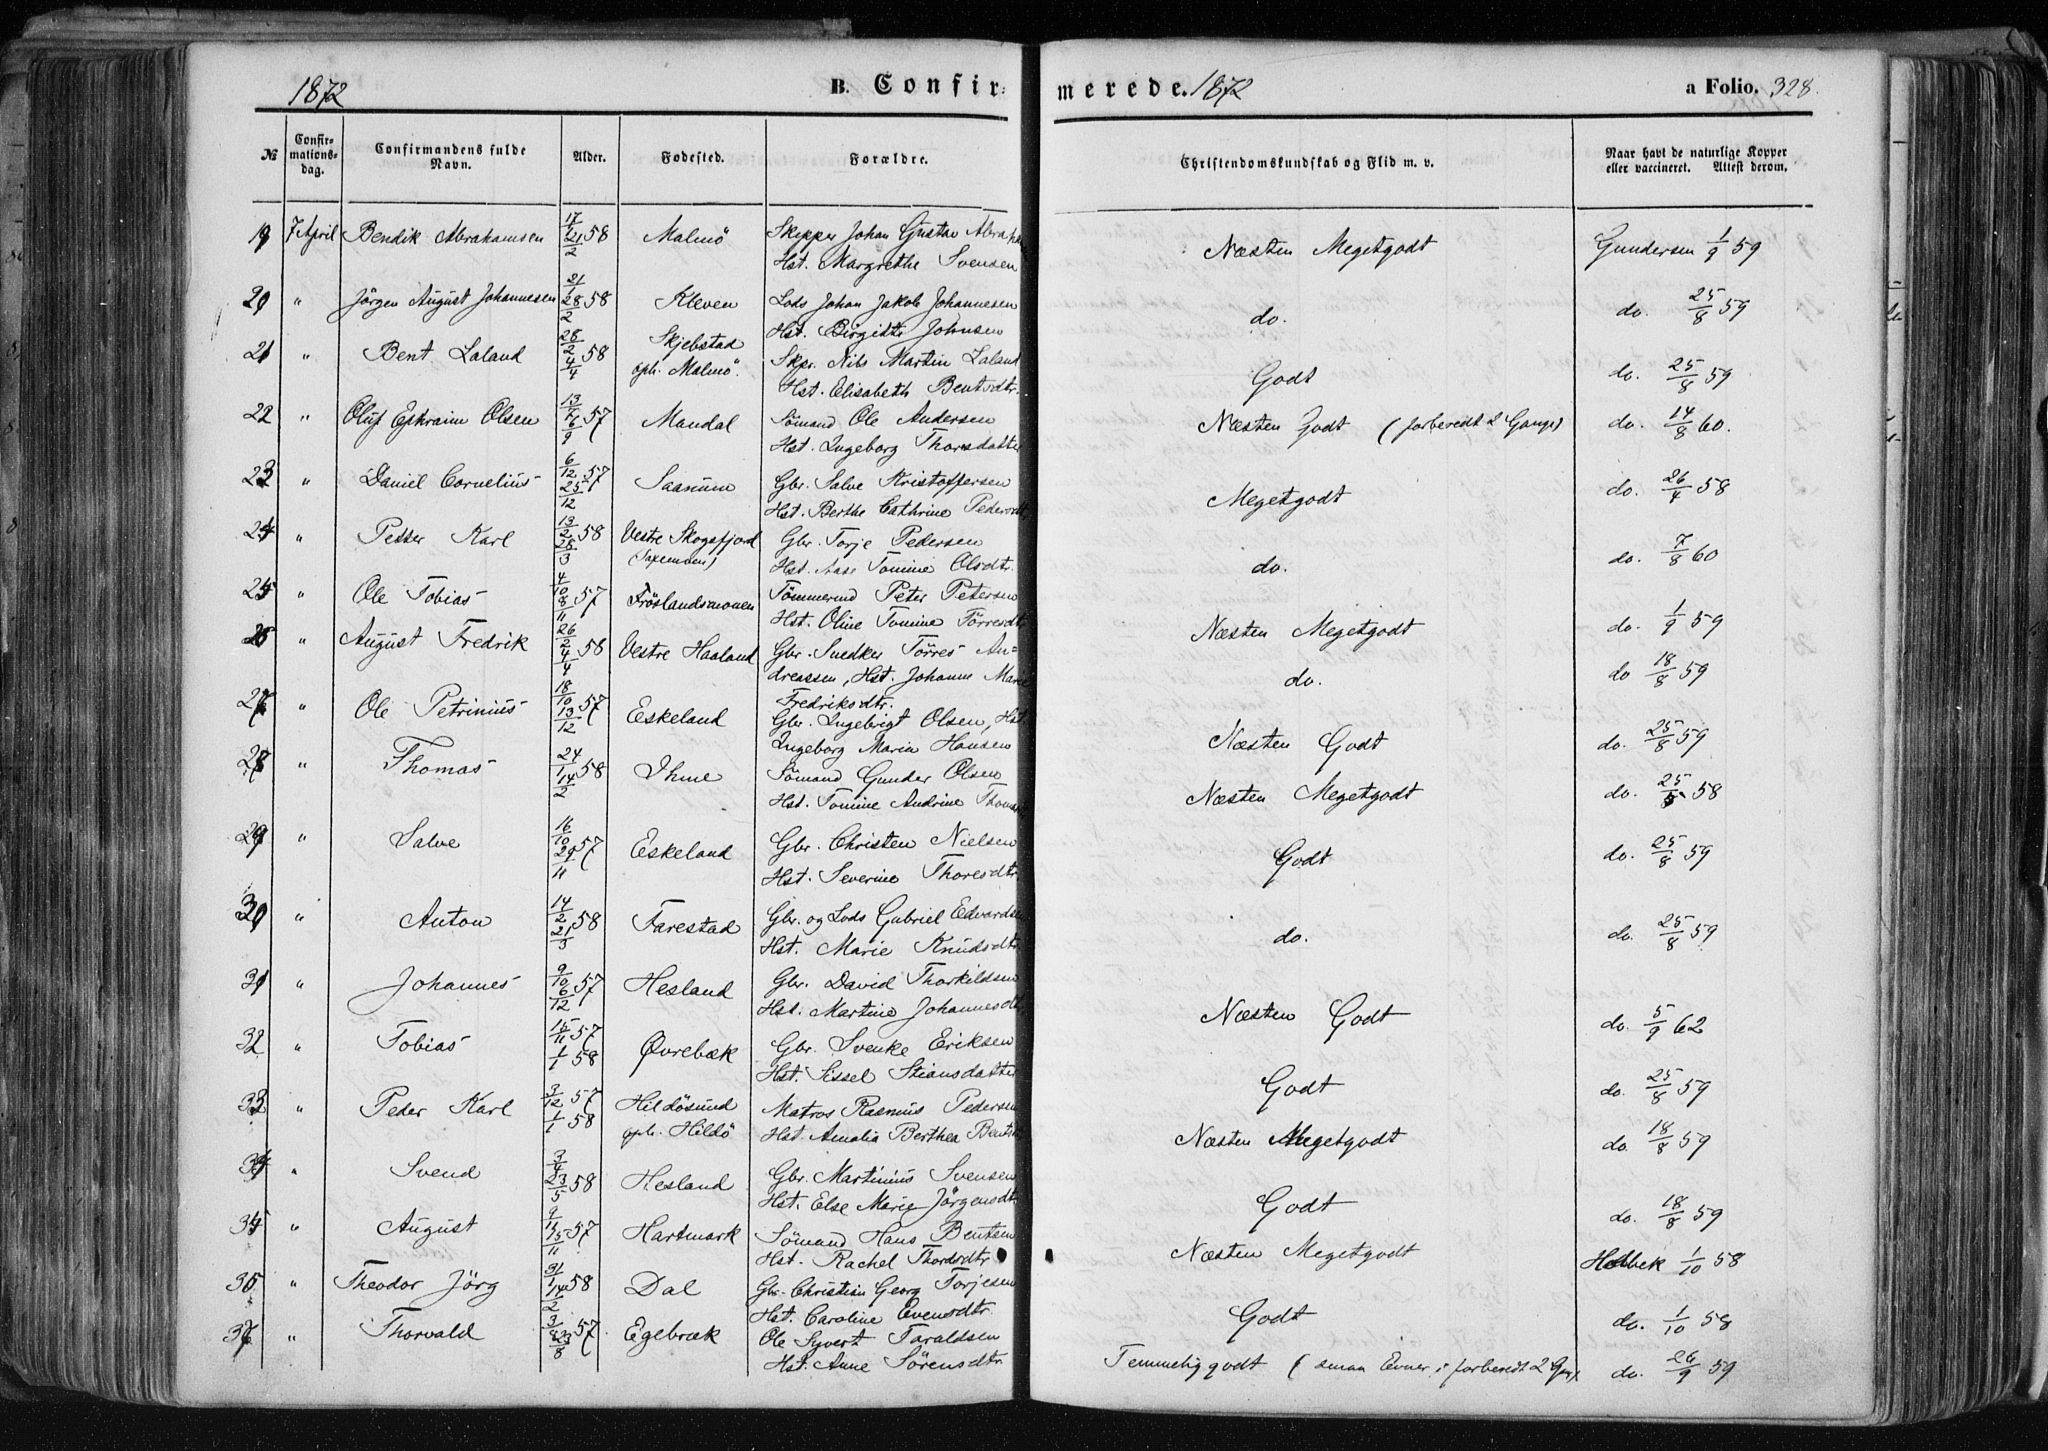 1872 B. Confirmerede. 1872 a Folio. 328.
№ Confirmationsdag. Confirmandens fulde Navn. Alder. Fødested. Forældre. Christendomskundskab og Flid m. v. Naar havt de naturlige Kopper eller vaccineret. Attest derom.
19 7 April Bendik Abrahamsen 17/1 21/2 58 Malmö Skipper Johan Gustav Abrah Næsten Megetgodt Gundersen 1/9 59
Hst. Margrethe Svensen
20 " Jörgen August Johannesen 21/1 28/2 58 Kleven Lods Johan Jakob Johannesen do. do. 25/8 59
Hst. Birgitte Johnsen
21 " Bent Laland 28/2 4/4 58 Skjebstad Skpr. Nils Martin Laland Godt do. 25/8 59
oph. Malmö. Hst. Elisabeth Bentsdtr.
22 " Oluf Ephraim Olsen 13/7 6/9 57 Mandal Sömand Ole Andersen Næsten Godt (forberedt 2 Gange) do. 14/8 60.
Hst. Ingeborg Thorsdatter
23 " Daniel Cornelius 6/12 25/12 57 Saanum Gbr. Salve Kristoffersen Megetgodt do. 26/4 58
Hst. Berthe Cathrine Pedersdtr
24 " Petter Karl 13/2 28/3 58 Vestre Skogsfjord Gbr. Torje Pedersen do. do. 7/8 60
Hst. Aase Tomine Olsdtr.
25 " Ole Tobias 4/10 8/11 57 Fröslandsmonen Tömmermd Peter Petersen Næsten Megetgodt do. 1/9 59
Hst. Oline Tomine Törresdtr
26 " August Fredrik 26/2 4/4 58 Vestre Haaland Gbr. Snedker Törres An- do. do 18/8 59
dreassen, Hst. Johanne Marie
Fredriksdtr.
27 " Ole Petrinius 18/10 13/12 57 Eskeland Gbr. Ingebrigt Olsen, Hst Næsten Godt do. 25/8 59
Ingeborg Maria Hansen
28 " Thomas 24/1 14/2 58 Ihme Sömand Gunder Olsen Næsten Megetgodt do. 25/5 58
Hst. Tomine Andrine Thomas
29 " Salve 16/10 29/11 57 Eskeland Gbr. Christen Nielsen Godt do. 25/8 59
Hst. Severine Thoresdtr.
30 " Anton 14/2 21/3 58 Farestad Gbr. og Lods Gabriel Edvardsen do. do. 25/8 59
Hst. Marie Knudsdtr
31 " Johannes 9/10 6/12 57 Hesland Gbr. David Thorkildsen Næsten Godt do. 5/9 62
Hst. Martine Johannesdtr
32 " Tobias 15/11 57 1/1 58 Øvrebæk Gbr. Svenke Eriksen Godt do. 25/8 59
Hst. Sissel Stiansdatter
33 " Peder Karl 3/12 57 1/1 58 Hildösund Matros Rasmus Pedersen Næsten Megetgodt do. 18/8 59
oph. Hildö Hst. Amalia Berthea Bents
34 " Svend 3/4 23/5 58 Hesland Gbr. Martinius Svensen Godt do. 18/8 59
Hst. Else Marie Jörgensdtr
35 " August 9/ 15/11 57 Hartmark Sömand Hans Bentsen Næsten Megetgodt Holbek 1/10 58
Hst. Rachel Thordsdtr
36 " Theodor Jörg 31/1 14/2 58 Dal Gbr. Christian Georg Torjesen Godt do. 1/10 58
Hst. Caroline Evensdtr.
37 " Thorvald 3/ 23/8 57 Egebræk Ole Syvert Taraldsen Temmelig godt (smaa Evner; forberedt 2 do. 26/9 59
Hst. Anne Sörensdtr.